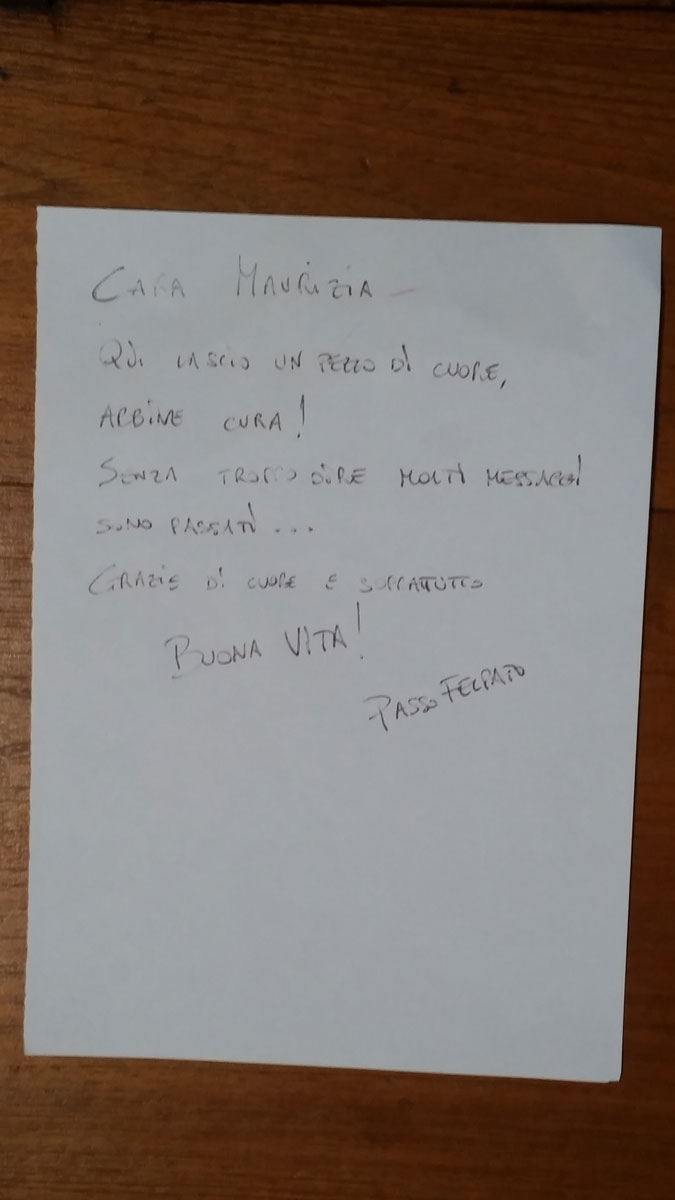 CARA MAURIZIA -
QUI LASCIO UN PEZZO DI CUORE,
ABBINE CURA!
SENZA TROPPO DIRE MOLTI MESSAGGI
SONO PASSATI...
GRAZIE DI CUORE E SOPRATTUTTO
BUONA VITA!
PASSO FELPATO